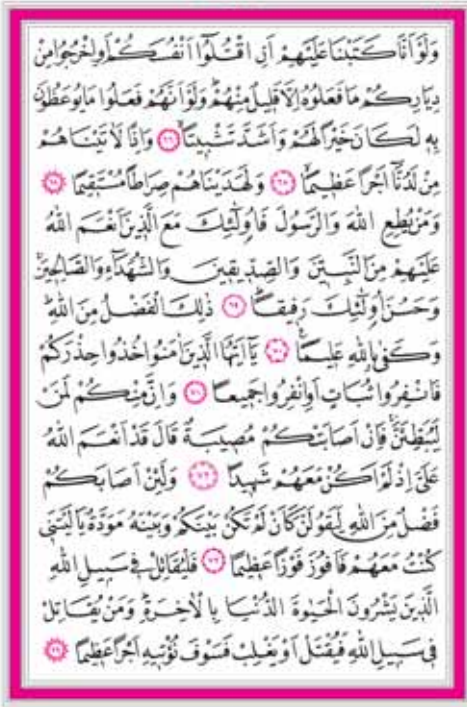 وَلَوْ اَنَّا كَتَبْنَا عَلَيْهِمْ اَنِ اقْتُلُٓوا اَنْفُسَكُمْ اَوِ اخْرُجُوا مِنْ
دِيَارِكُمْ مَا فَعَلُوهُ اِلَّا قَلِيلٌ مِنْهُمْۜ وَلَوْ اَنَّهُمْ فَعَلُوا مَا يُوعَظُونَ
بِه۪ لَكَانَ خَيْرًا لَهُمْ وَاَشَدَّ تَثْب۪يتًاۙ ﴿٦٦﴾ وَاِذًا لَاٰتَيْنَاهُمْ
مِنْ لَدُنَّٓا اَجْرًا عَظ۪يمًاۙ ﴿٦٧﴾ وَلَهَدَيْنَاهُمْ صِرَاطًا مُسْتَق۪يمًا ﴿٦٨﴾
وَمَنْ يُطِعِ اللّٰهَ وَالرَّسُولَ فَاُو۬لٰٓئِكَ مَعَ الَّذ۪ينَ اَنْعَمَ اللّٰهُ
عَلَيْهِمْ مِنَ النَّبِيّ۪نَ وَالصِّدّ۪يق۪ينَ وَالشُّهَدَٓاءِ وَالصَّالِح۪ينَۚ
وَحَسُنَ اُو۬لٰٓئِكَ رَف۪يقًاۜ ﴿٦٩﴾ ذٰلِكَ الْفَضْلُ مِنَ اللّٰهِۜ
وَكَفٰى بِاللّٰهِ عَل۪يمًا۟ ﴿٧٠﴾ يَٓا اَيُّهَا الَّذ۪ينَ اٰمَنُوا خُذُوا حِذْرَكُمْ
فَانْفِرُوا ثُبَاتٍ اَوِ انْفِرُوا جَم۪يعًا ﴿٧١﴾ وَاِنَّ مِنْكُمْ لَمَنْ
لَيُبَطِّئَنَّۚ فَاِنْ اَصَابَتْكُمْ مُص۪يبَةٌ قَالَ قَدْ اَنْعَمَ اللّٰهُ
عَلَيَّ اِذْ لَمْ اَكُنْ مَعَهُمْ شَه۪يدًا ﴿٧٢﴾ وَلَئِنْ اَصَابَكُمْ
فَضْلٌ مِنَ اللّٰهِ لَيَقُولَنَّ كَاَنْ لَمْ تَكُنْ بَيْنَكُمْ وَبَيْنَهُ مَوَدَّةٌ يَا لَيْتَن۪ي
كُنْتُ مَعَهُمْ فَاَفُوزَ فَوْزًا عَظ۪يمًا ﴿٧٣﴾ فَلْيُقَاتِلْ ف۪ي سَب۪يلِ اللّٰهِ
الَّذ۪ينَ يَشْرُونَ الْحَيٰوةَ الدُّنْيَا بِالْاٰخِرَةِۜ وَمَنْ يُقَاتِلْ
ف۪ي سَب۪يلِ اللّٰهِ فَيُقْتَلْ اَوْ يَغْلِبْ فَسَوْفَ نُؤْت۪يهِ اَجْرًا عَظ۪يمًا ﴿٧٤﴾